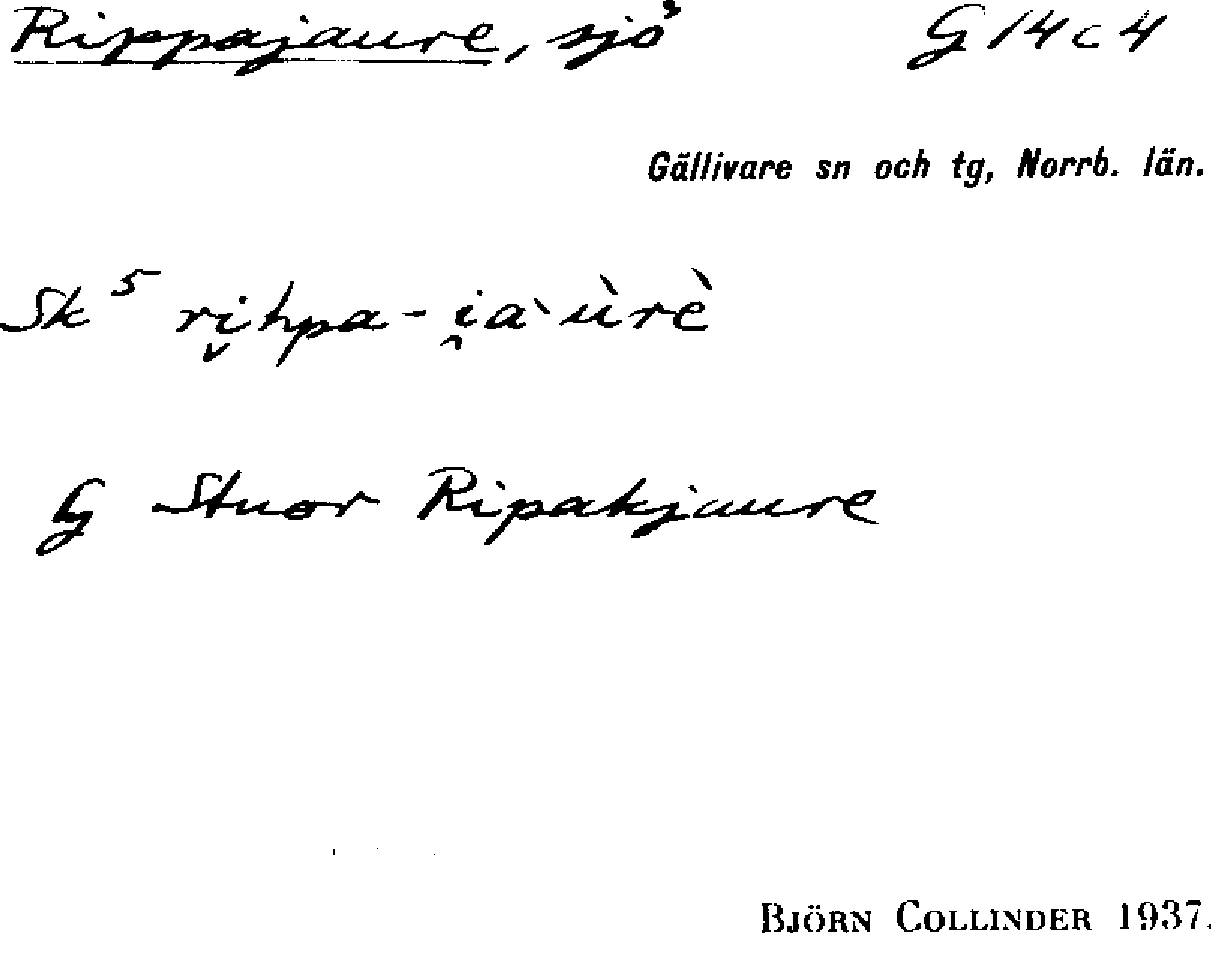 Rippajaure, sjö G 14 c 4
Gällivare sn och tg, Norrb. län.
Sk⁵ ri̬hpa-i̭a`ùrè
G Stuor Ripakjaure
BJÖRN COLLINDER 1937.